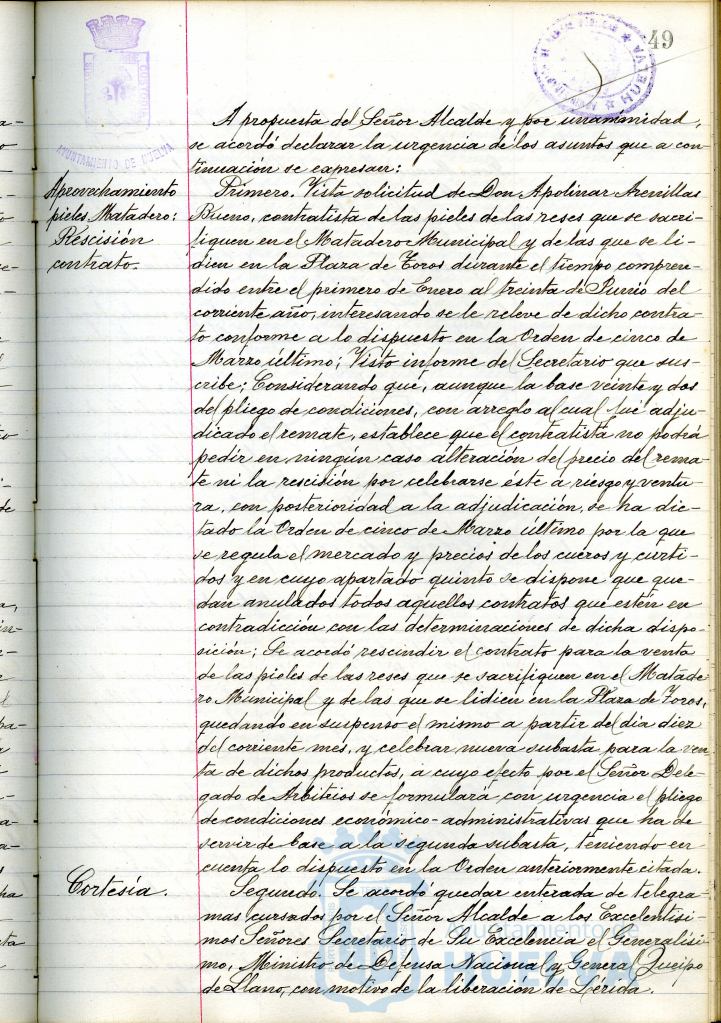 49
AYUNTAMIENTO DE HUELVA
A propuesta del Señor Alcalde y por unanimidad,
se acordó declarar la urgencia de los asuntos que a con
tinuación se expresan:
Aprovechamiento
pieles Matadero:
Rescisión
contrato.
Primero. Vista solicitud de Don Apolinar Arenillas
Bueno, contratista de las pieles de las reses que se sacri-
fiquen en el Matadero Municipal y de las que se li-
dien en la Plaza de Toros durante el tiempo compren-
dido entre el primero de Enero al treinta de Junio del
corriente año, interesando se le releve de dicho contra-
to conforme a lo dispuesto en la Orden de cinco de
Marzo último; Visto informe del Secretario que sus-
cribe; Considerando que, aunque la base veinte y dos
del pliego de condiciones, con arreglo al cual fué adju-
dicado el remate, establece que el contratista no podrá
pedir en ningún caso alteración del precio del rema-
te ni la rescisión por celebrarse éste a riesgo y ventu-
ra, con posterioridad a la adjudicación, se ha dic-
tado la Orden de cinco de Marzo último por la que
se regula el mercado y precios de los cueros y curti-
dos y en cuyo apartado quinto se dispone que que-
dan anulados todos aquellos contratos que estén en
contradición con las determinaciones de dicha dispo-
sición; Se acordó rescindir el contrato para la venta
de las pieles de las reses que se sacrifiquen en el Matade
ro Municipal y de las que se lidien en la Plaza de Toros,
quedando en suspenso el mismo a partir del dia diez
del corriente mes, y celebrar nueva subasta para la ven
ta de dichos productos, a cuyo efecto por el Señor Dele-
gado de Arbitrios se formulará con urgencia el pliego
de condiciones económico-administrativas que ha de
servir de base a la segunda subasta, teniendo en
cuenta lo dispuesto en la Orden anteriormente citada.
Cortesía.
Segundo. Se acordó quedar enterada de telegra-
mas cursados por el Señor Alcalde a los Excelentísi-
mos Señores Secretario de Su Excelencia el Generalísi-
mo, Ministro de Defensa Nacional y General Queipo
de Llano, con motivo de la liberación de Lerida.
Ayuntamiento de
HUELVA